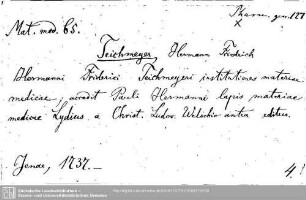 Pharm. gen. 127
Mat. med. 65.
x
Teichmeyer Hermann Friedrich
Hermanni Friderici Teichmeyeri institutiones materiae
medicae, accedit Pauli Hermanni lapis materiae
medicae Lydius a Christ. Ludov. Welschio antea editus.
Jenae, 1737.—
4.
Sächsische Landesbibliothek –
Staats- und Universitätsbibliothek Dresden